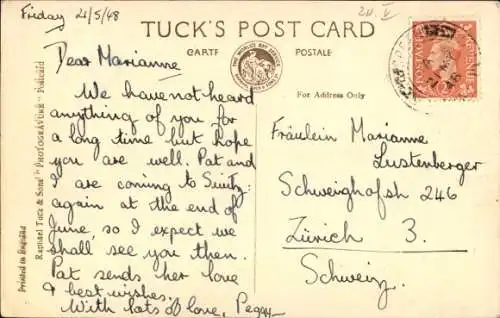 Friday 21/5/48
20. V
TUCK'S POST CARD
CARTE
POSTALE
For Address Only
Dear Marianne
We have not heard
anything of you for
a long time but hope
you are well. Pat and
I are coming to Switz:
again at the end of
June, so I expect we
shall see you then.
Pat sends her love
& best wishes.
With lots of love, Peggy
Fräulein Marianne
Lustenberger
Schweighofstr 246
Zürich 3.
Schweiz.
Raphael Tuck & Sons' "PHOTOGRAVURE" Postcard
Printed in England
POSTAGE